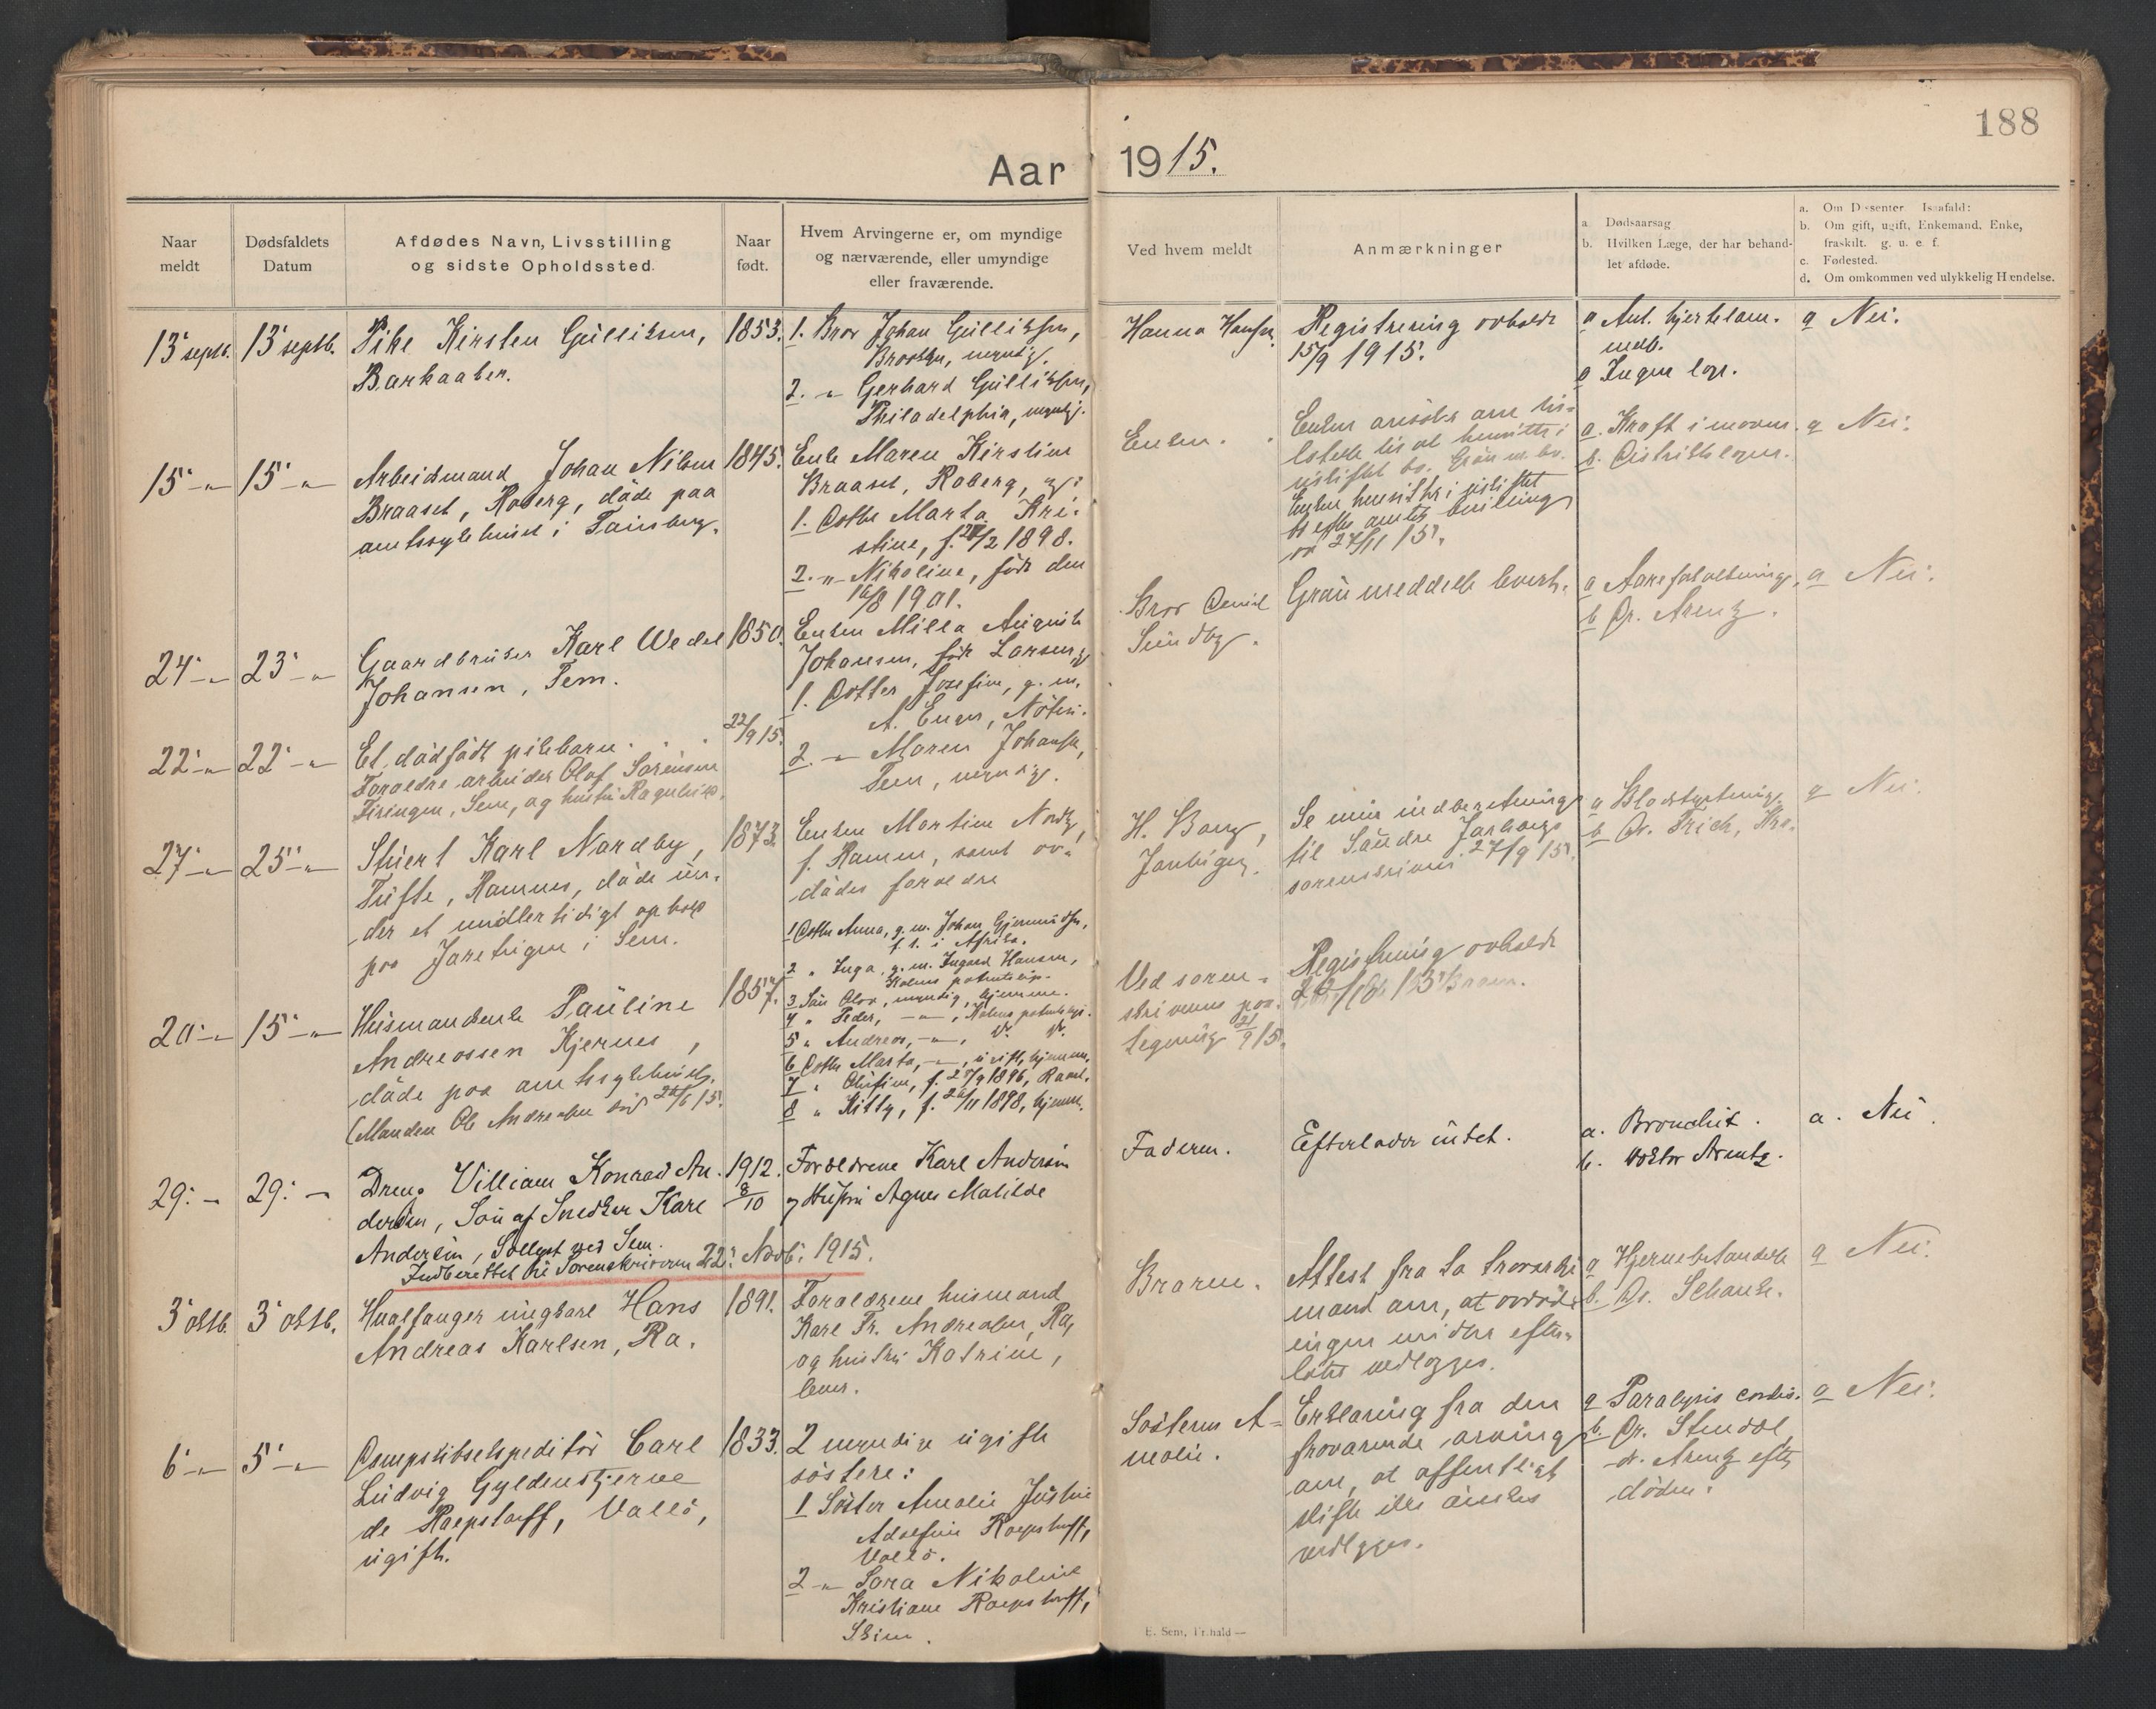 188
Aar 1915.
Naar meldt
Dødsfaldets Datum
Afdødes Navn, Livsstilling og sidste Opholdssted.
Naar født.
Hvem Arvingerne er, om myndige og nærværende, eller umyndige eller fraværende.
Ved hvem meldt
Anmærkninger
a. Dødsaarsag
b. Hvilken Læge, der har behandlet afdøde.
a. Om Dissenter. Isaafald:
b. Om gift, ugift, Enkemand, Enke, fraskilt. g. u. e. f.
c. Fødested.
d. Om omkommen ved ulykkelig Hændelse.
13 septb. 13 septb. Pike Kirsten Gulliksen, 1853.
Barkaaker.
1. Bror Johan Gulliksen,
myndig.
2. -"- Gerhard Gulliksen,
Philadelphia, myndig.
Hanna Hansen.
Registrering avholdt
15/9 1915.
a Ant. hjertelam-
b Ingen læge.
a Nei.
15 -"- 15 -"- Arbeidsmand Johan Nilsen 1845.
Braaset, Roberg, døde paa
amtssykehuset i Tønsberg.
Enke Maren Kirstine
Braaset, Roberg, og
1. Datter Marta Kri-
stine, f. 2/2 1898.
2. -"- Nikoline, født den
16/8 1901.
Enken.
Enken hensitter i uskiftet
bo efter amtets bevilling
av 27/11 15.
a. Kræft i maven.
b. Distriktslægen.
a Nei.
24 -"- 23 -"- Gaardbruker Karl Wedel 1850.
Johansen, Sem.
Enken Milla Auguste
Johansen, født Larsen, og
1. Datter Josefine, g. m.
2. -"- Maren Johansen,
Sem, myndig.
Bror
Sundby.
a Aareforkalkning.
b Dr. Arentz.
a Nei.
22 -"- 22 -"- Et dødfødt pikebarn. 22/9 15.
Forældre arbeider Olaf Sørensen
Sem, og hustru Ragnhild.
27 -"- 25 -"- Karl Nordby, 1873.
Tufte, Ramnes, døde un-
der et midlertidigt ophold
paa Jareteigen i Sem.
Enken Martine Nordby,
f. Ramm, samt av-
dødes forældre
H. Bang,
Se min indberetning
til Søndre Jarlsberg
sorenskriveri 27/9 15.
a Nei.
20 -"- 15 -"- Husmandsenke Pauline 1857.
Andreassen Kjernes,
døde paa amtssykehuset.
(Manden Ole Andreassen død
1 Datter Anna, g. m. Johan Gjermundsen,
f. t. i Afrika.
2 " Inga, g. m. Ingvard Hansen,
3. Søn Olav, myndig, hjemme.
4 " Peder, -"-,
5 " Andreas, -"-, do. do.
6 Datter Marta, -"-, ugift, hjemme.
7 " f. 27/9 1896,
8 " Kitty, f. 26/11 1898, hjemme.
Ved soren-
skriverens paa-
tegning 21/9 15.
Registrering avholdt
29: - 29: - Dreng William Konrad An- 1912.
dersen, Søn af Snedker Karl 8/10
Andersen, Solløst ved Sem.
Indberettet til Sorenskriveren 22: Novb. 1915.
Forældrene Karl Andersen
og Hustru Agnes Matilde
Faderen.
Efterlader intet.
a. Bronchit.
b. Doktor Arentz.
a. Nei.
3 oktb. 3 oktb. Hvalfanger ungkarl Hans 1891.
Andreas Karlsen, Ra.
Forældrene husmand
Karl Fr. Andreassen, Ra,
og hustru Katrine,
lever.
Broren.
Attest fra to troværdige
mænd om, at avdøde
ingen midler efter-
lot vedlægges.
a Hjernebetændelse
b. Dr. Schanke.
a Nei.
6 -"- 5 -"- Dampskibsekspeditør Carl 1833.
Ludvig Gyldenstjerne
de Roepstorff, Vallø,
ugift.
2 myndige ugifte
søstere:
1 Søster Amalie Justine
Adolfine Roepstorff,
Vallø.
2 -"- Sara Nikoline
Kristiane Roepstorff,
Skien.
Søsteren A-
malie.
Erklæring fra den
fraværende arving
om, at offentligt
skifte ikke ønskes
vedlægges.
a Paralysis cordis.
b. Dr. Stendal,
dr. Arentz efter
døden.
a Nei.
E. Sem, Fr.hald —